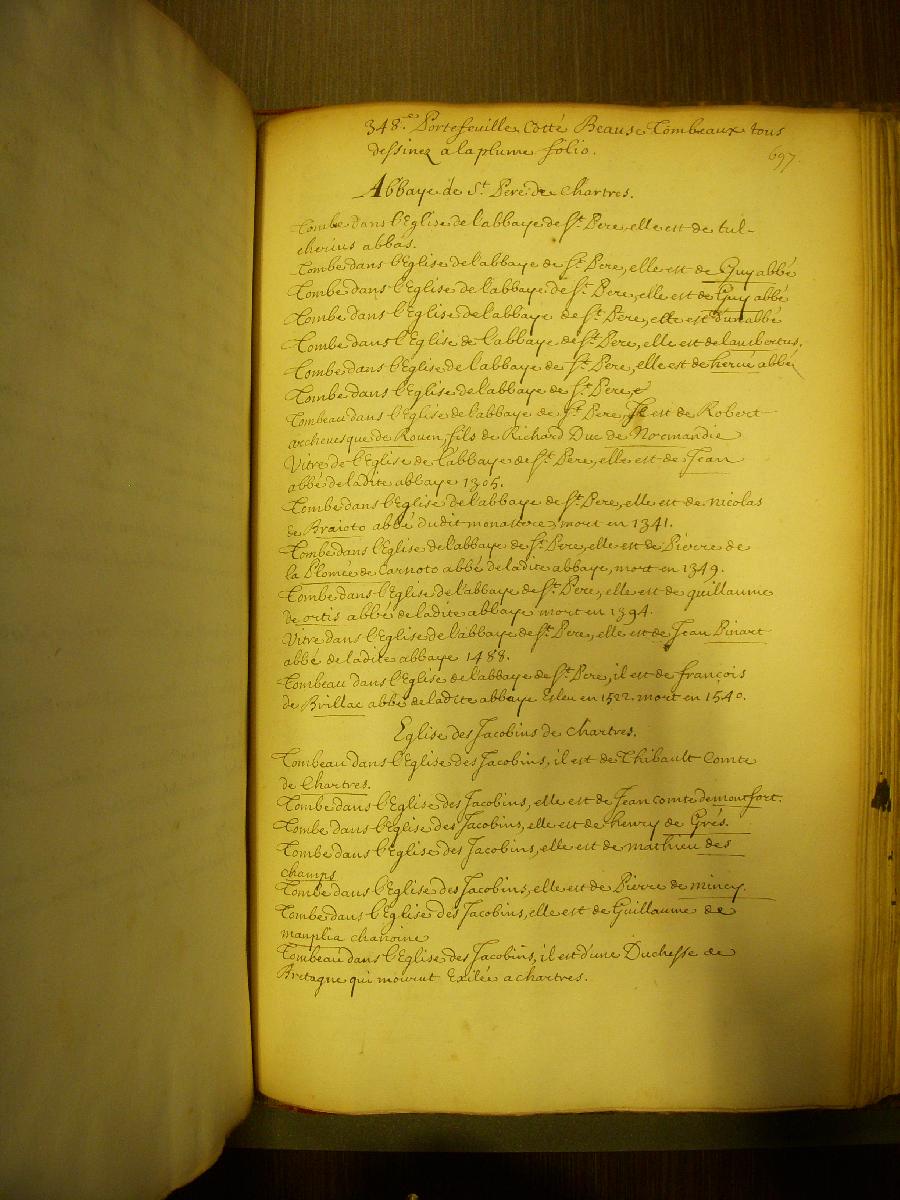 348.e Portefeuille Cotté Beausse Tombeaux tous
dessinez a la plume folio.
697.
Abbaye de St. Pere de Chartres.
Tombe dans l'Eglise de l'abbaye de St. Pere, elle est de tul-
cherius abbas.
Tombe dans l'Eglise de l'abbaye de St. Pere, elle est de Guy abbé
Tombe dans l'Eglise de l'abbaye de St. Pere, elle est de Guy abbé
Tombe dans l'Eglise de l'abbaye de St. Pere, elle est d'un abbé
Tombe dans l'Eglise de l'abbaye de St. Pere, elle est de lambertus.
Tombe dans l'Eglise de l'abbaye de St. Pere, elle est de herué abbé
Tombe dans l'Eglise de l'abbaye de St. Pere,
Tombeau dans l'Eglise de l'abbaye de St. Pere, Il est de Robert
archeuesque de Rouen, fils de Richard Duc de Normandie
Vitre de l'Eglise de l'abbaye de St. Pere, elle est de Jean
abbé de ladite abbaye 1305.
Tombe dans l'Eglise de l'abbaye de St. Pere, elle est de nicolas
de Braioto abbé dudit monastere, mort en 1341.
Tombe dans l'Eglise de l'abbaye de St. Pere, elle est de Pierre de
la Plomée de Carnoto abbé de ladite abbaye, mort en 1349.
Tombe dans l'Eglise de l'abbaye de St. Pere, elle est de guillaume
de ortis abbé de ladite abbaye mort en 1394.
Vitre dans l'Eglise de l'abbaye de St. Pere, elle est de Jean Pinart
abbé de ladite abbaye 1488.
Tombeau dans l'Eglise de l'abbaye de St. Pere, il est de françois
de Brillac abbé de ladite abbaye Esleu en 1522. mort en 1540.
Eglise des Jacobins de Chartres.
Tombeau dans l'Eglise des Jacobins, il est de Thibault Comte
de Chartres.
Tombe dans l'Eglise des Jacobins, elle est de Jean comte de montfort.
Tombe dans l'Eglise des Jacobins, elle est de henry de Grés.
Tombe dans l'Eglise des Jacobins, elle est de mathieu des
champs
Tombe dans l'Eglise des Jacobins, elle est de Pierre de mincy.
Tombe dans l'Eglise des Jacobins, elle est de Guillaume de
manplia chanoine
Tombeau dans l'Eglise des Jacobins, il est d'une Duchesse de
Bretagne qui mourut Exilée a chartres.